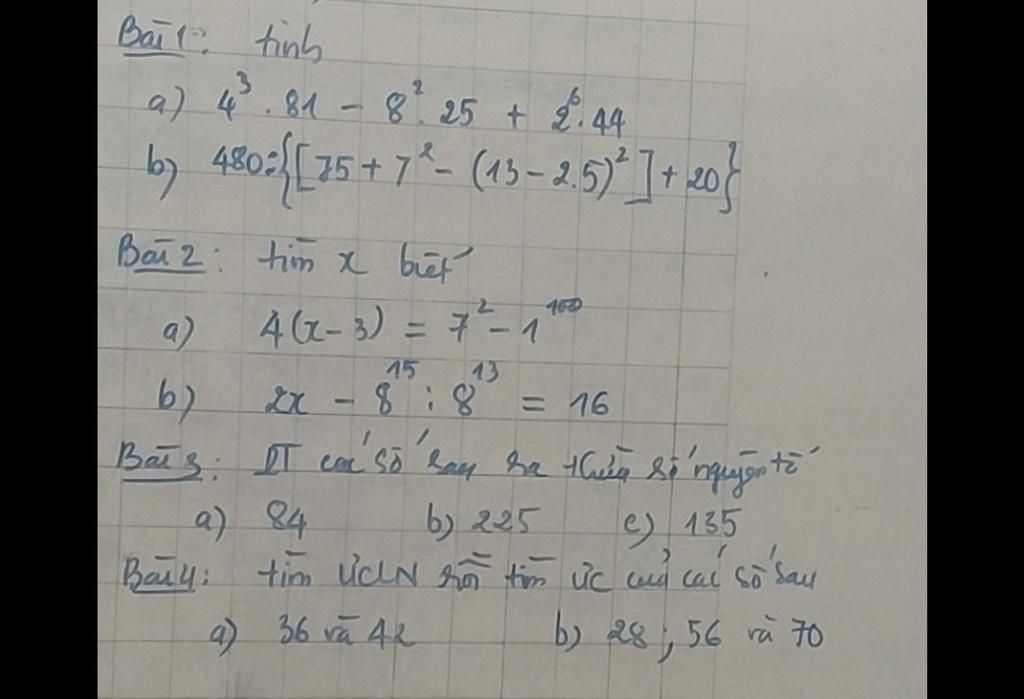 Bài 1: tính
a) 4³ . 81 - 8² . 25 + 2⁶ . 44
b) 480 : {[75 + 7² - (13 - 2.5)²] + 20}
Bài 2: tìm x biết
a) 4(x - 3) = 7² - 1¹⁰⁰
b) 2x - 8¹⁵ : 8¹³ = 16
Bài 3: PT các số sau ra thừa số nguyên tố
a) 84 b) 225 c) 135
Bài 4: tìm ƯCLN rồi tìm ƯC của các số sau
a) 36 và 42 b) 28 ; 56 và 70